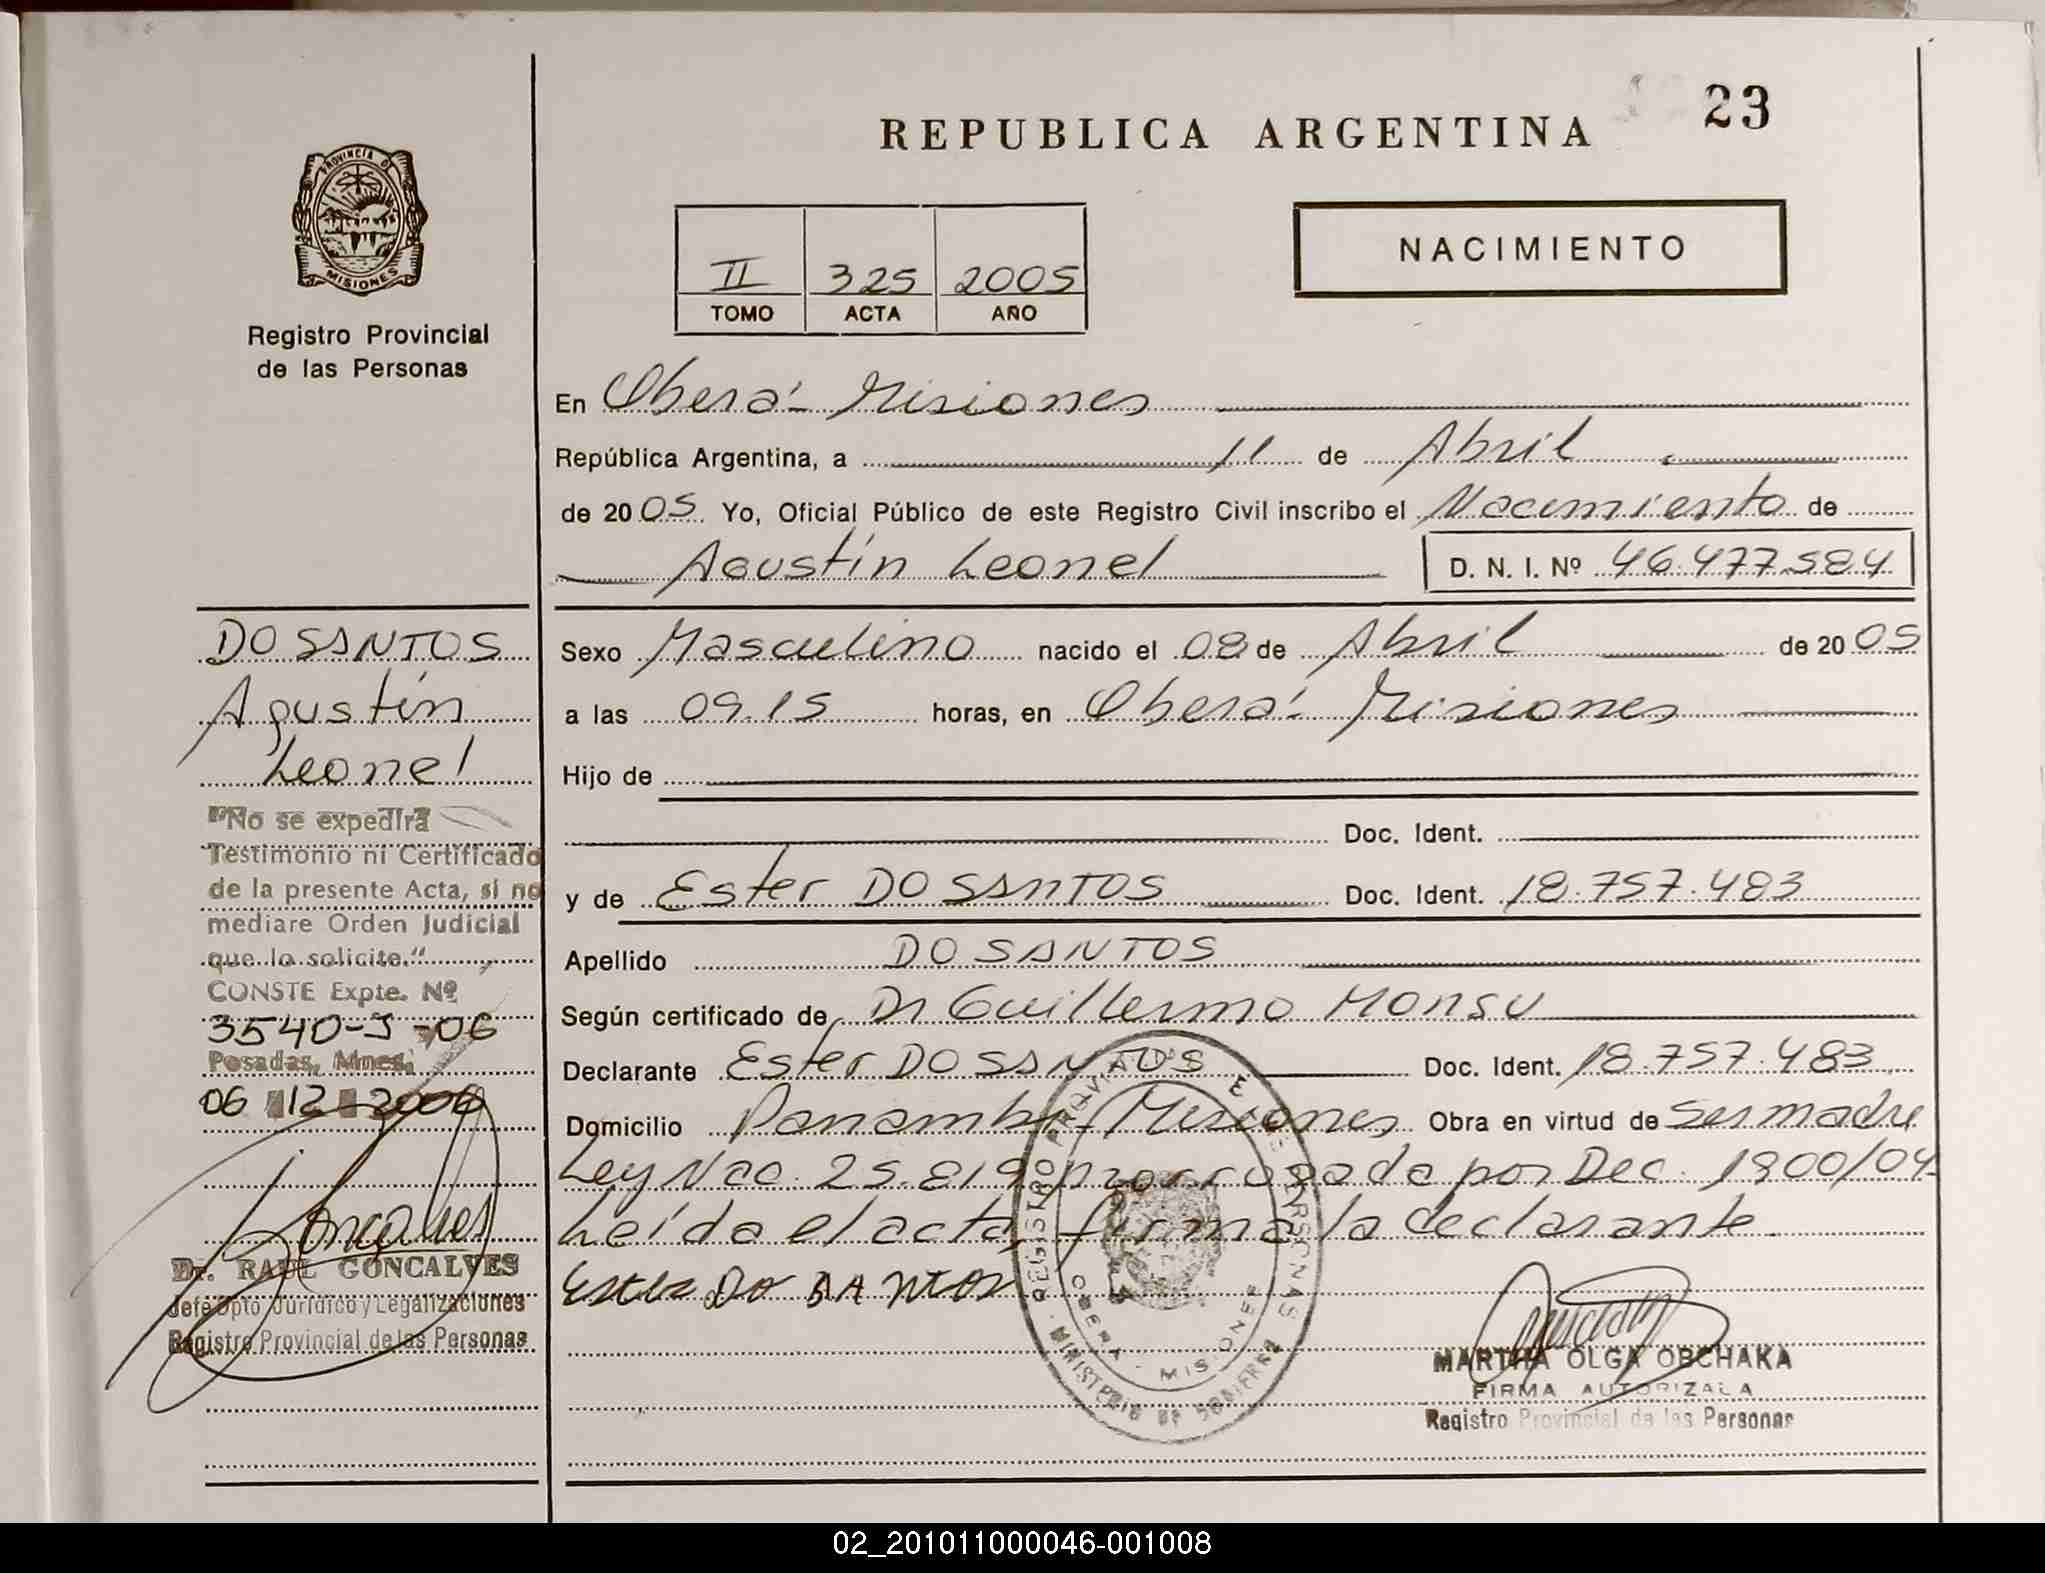 23
REPUBLICA ARGENTINA
PROVINCIA DE
MISIONES
Registro Provincial
de las Personas
II 325 2005
TOMO ACTA AÑO
NACIMIENTO
En Oberá - Misiones
República Argentina, a 11 de Abril
de 2005 Yo, Oficial Público de este Registro Civil inscribo el Nacimiento de
Agustín Leonel D. N. I. Nº 46.477.584
Sexo Masculino nacido el 08 de Abril de 2005
a las 09.15 horas, en Oberá - Misiones
Hijo de
Doc. Ident.
y de Ester DO SANTOS Doc. Ident. 18.757.483
Apellido DO SANTOS
Según certificado de Dr Guillermo Monsu
Declarante Ester DO SANTOS Doc. Ident. 18.757.483
Domicilio Panambí - Misiones Obra en virtud de Ser madre
Ley Nac. 25.819 prorrogada por Dec. 1800/04
Leída el acta, firma la declarante
Ester DO SANTOS
REGISTRO PROVINCIAL DE LAS PERSONAS
OBERA - MISIONES
MINISTERIO DE GOBIERNO
MARTHA OLGA OBCHAKA
FIRMA AUTORIZADA
Registro Provincial de las Personas
DO SANTOS
Agustín
Leonel
"No se expedirá
Testimonio ni Certificado
de la presente Acta, si no
mediare Orden Judicial
que lo solicite."
CONSTE Expte. Nº
3540-J-06
Posadas, Mnes.
06 12 2006
Dr. RAUL GONCALVES
Jefe Dpto Jurídico y Legalizaciones
Registro Provincial de las Personas
02_201011000046-001008